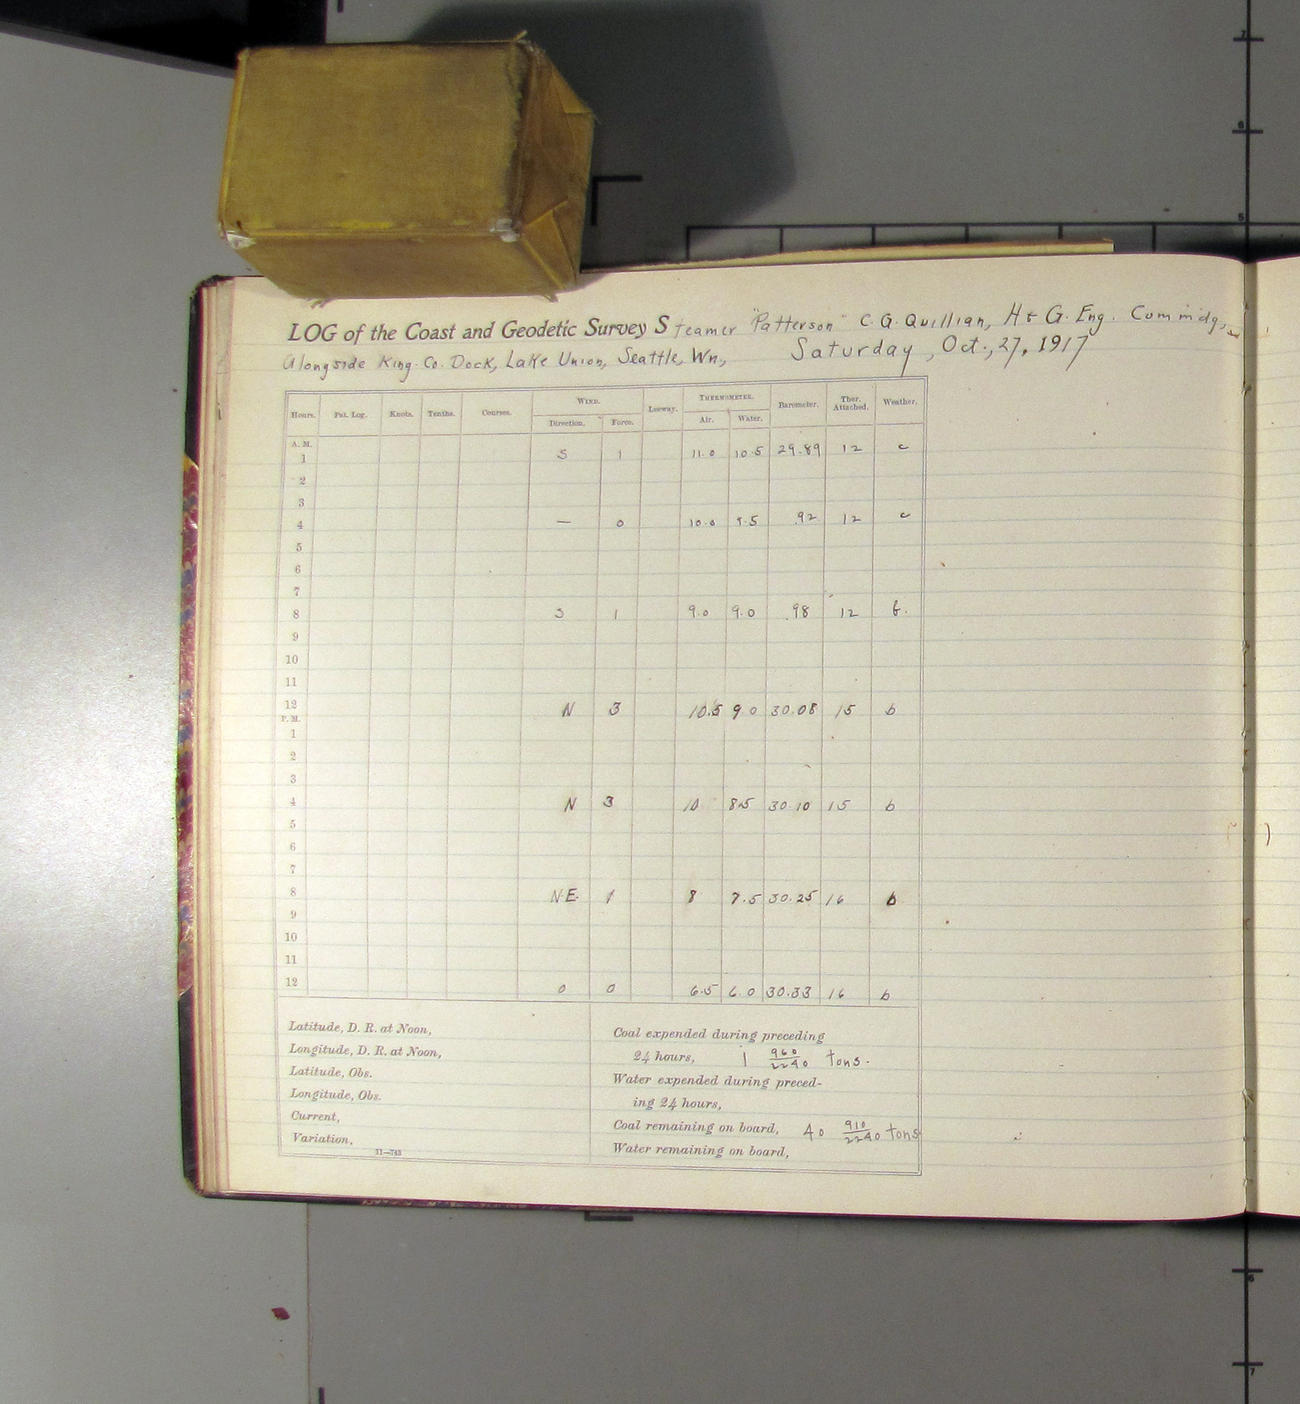 LOG of the Coast and Geodetic Survey Steamer "Patterson" C. G. Quillian, H & G. Eng. Commidg.,
Alongside King. Co. Dock, Lake Union, Seattle, Wn., Saturday, Oct., 27, 1917
Hours. Pat. Log. Knots. Tenths. Courses. WIND. Leeway. THERMOMETER. Barometer. Ther. Attached. Weather.
Direction. Force. Air. Water.
A. M.
1 S 1 11.0 10.5 29.89 12 c
2
3
4 — 0 10.0 9.5 .92 12 c
5
6
7
8 S 1 9.0 9.0 .98 12 b.
9
10
11
12 N 3 10.5 9 0 30.08 15 b
P. M.
1
2
3
4 N 3 10 8.5 30 10 15 b
5
6
7
8 N.E. 1 8 7.5 30.25 16 b
9
10
11
12 0 0 6.5 6.0 30.33 16 b
Latitude, D. R. at Noon,
Longitude, D. R. at Noon,
Latitude, Obs.
Longitude, Obs.
Current,
Variation,
11—743
Coal expended during preceding
24 hours, 1 960/2240 tons.
Water expended during preced-
ing 24 hours,
Coal remaining on board, 40 910/2240 tons
Water remaining on board,
7
6
5
6
7